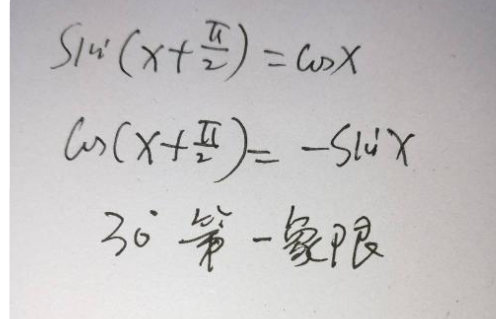 sin(x+π/2)=cosx
cos(x+π/2)=-sinx
30°第一象限